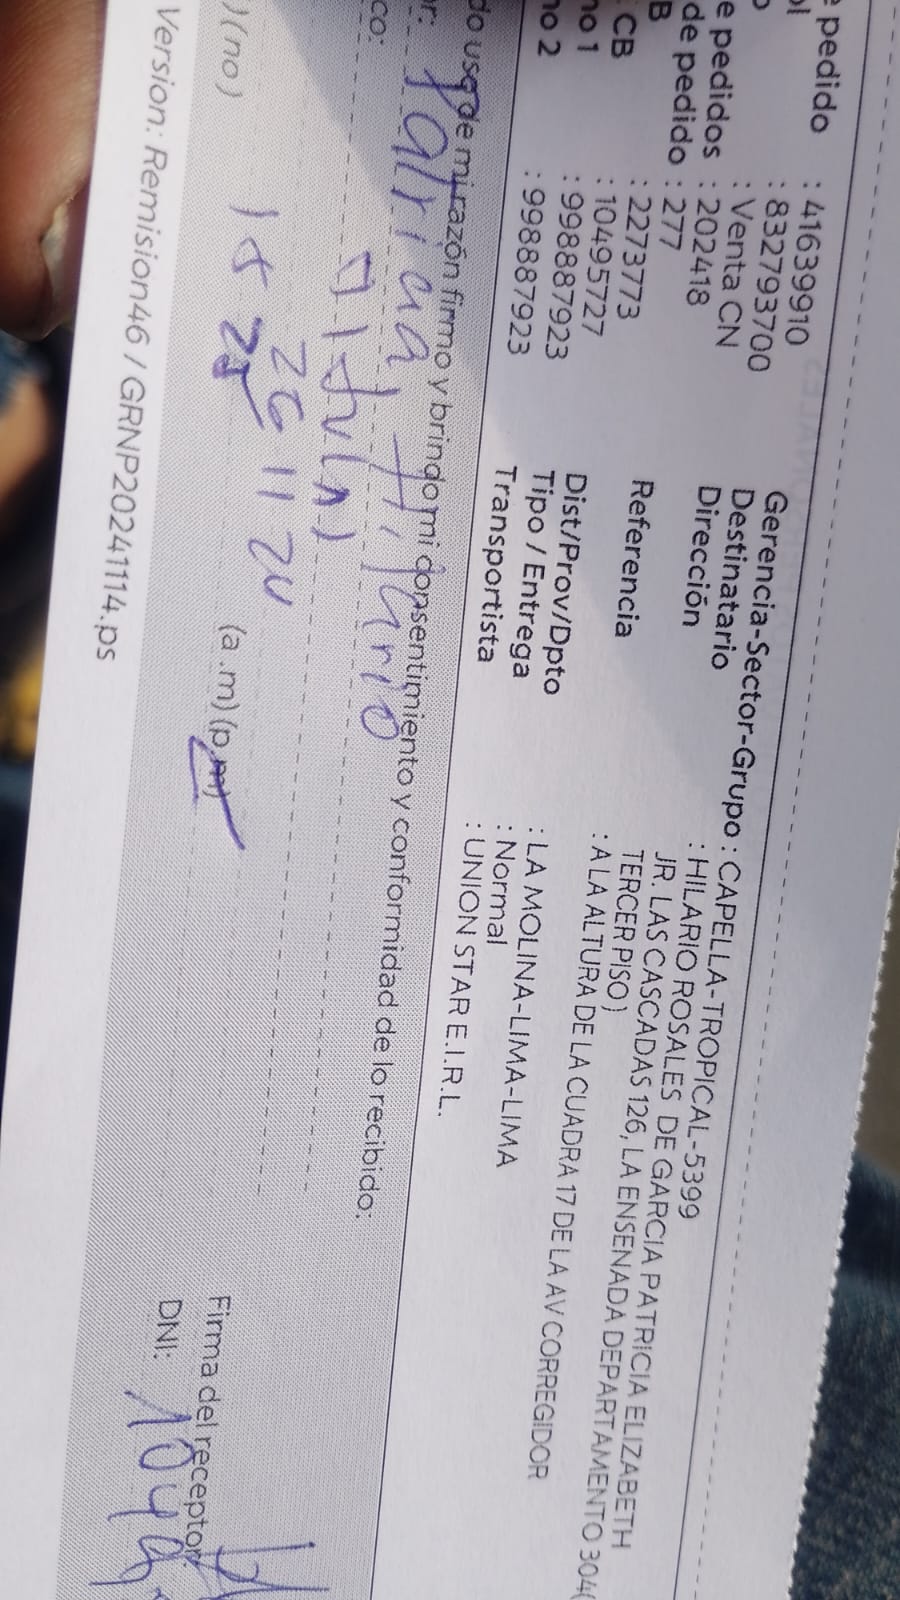 e pedido : 41639910
ol : 832793700
o : Venta CN
e pedidos : 202418
de pedido : 277
B : 2273773
CB : 10495727
no 1 : 998887923
no 2 : 998887923
Gerencia-Sector-Grupo : CAPELLA-TROPICAL-5399
Destinatario : HILARIO ROSALES DE GARCIA PATRICIA ELIZABETH
Dirección JR. LAS CASCADAS 126, LA ENSENADA DEPARTAMENTO 304(
TERCER PISO)
Referencia : A LA ALTURA DE LA CUADRA 17 DE LA AV CORREGIDOR
Dist/Prov/Dpto : LA MOLINA-LIMA-LIMA
Tipo / Entrega : Normal
Transportista : UNION STAR E.I.R.L.
do uso de mi razón firmo y brindo mi consentimiento y conformidad de lo recibido:
or:
co:
26 11 24
)(no) (a.m)(p.m)
Firma del receptor:
DNI:
Version: Remision46 / GRNP20241114.ps